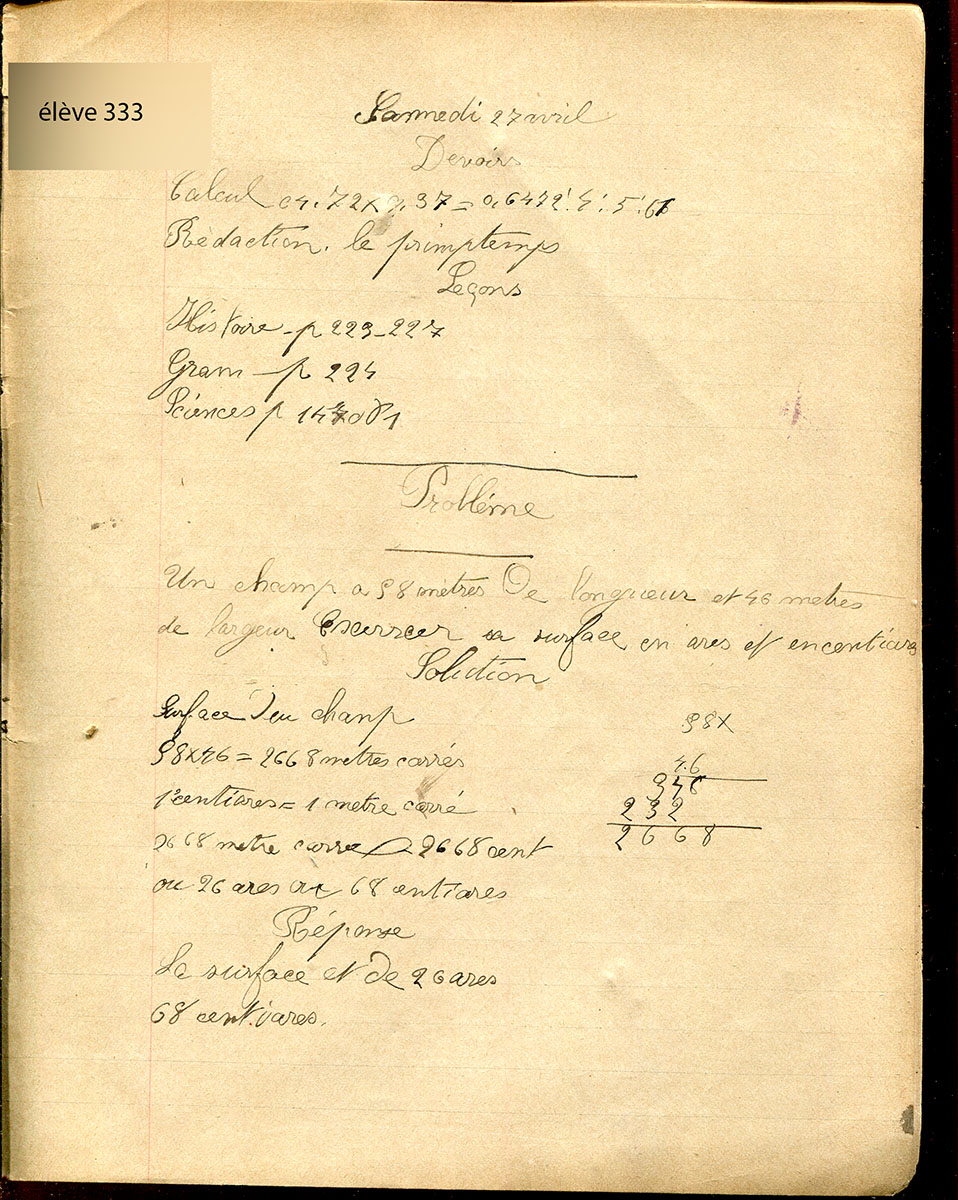 élève 333
Sammedi 27 avril
Devoirs
Calcul 04.72x0.37 = 0,6472
Rédaction. le primptemps
Leçons
Histoire - p 223-227
Gram - p 224
Sciences p
Problème
Un champ a 58 mètres De longueur et 46 metres
de largeur sa surface en ares et encentiares
Solution
Surface Deu champ
58x46 = 2668 metres carrés
1 centiares = 1 metre carré
2668 metre carre = 2668 cent
ou 26 ares 68 centiares
Réponse
La surface et de 26 ares
68 centiares.
58x
46
348
232
2668